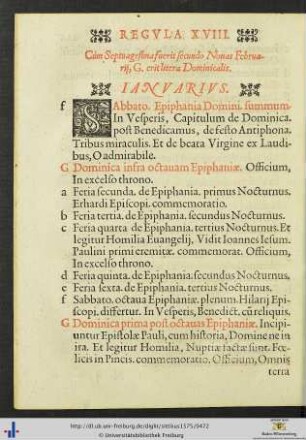 REGVLA. XVIII.
Cùm Septuagesima fuerit secundo Nonas Februa-
rij, G. erit litera Dominicalis.
IANVARIVS.
f SAbbato. Epiphania Domini. summum.
In Vesperis, Capitulum de Dominica.
post Benedicamus, de festo Antiphona.
Tribus miraculis. Et de beata Virgine ex Laudi-
bus, O admirabile.
G Dominica infra octauam Epiphaniæ. Officium,
In excelso throno.
a Feria secunda. de Epiphania. primus Nocturnus.
Erhardi Episcopi. commemoratio.
b Feria tertia. de Epiphania. secundus Nocturnus.
c Feria quarta de Epiphania. tertius Nocturnus. Et
legitur Homilia Euangelij, Vidit Ioannes Iesum.
Paulini primi eremitæ. commemorat. Officium,
In excelso throno.
d Feria quinta. de Epiphania. secundus Nocturnus.
e Feria sexta. de Epiphania. tertius Nocturnus.
f Sabbato. octaua Epiphaniæ. plenum. Hilarij Epi-
scopi. differtur. In Vesperis, Benedict. cū reliquis.
G Dominica prima post octauas Epiphaniæ. Incipi-
untur Epistolæ Pauli, cum historia, Domine ne in
ira. Et legitur Homilia, Nuptiæ factæ sunt. Fœ-
licis in Pincis. commemoratio. Officium, Omnis
terra
http://dl.ub.uni-freiburg.de/diglit/ottilius1575/0472
© Universitätsbibliothek Freiburg